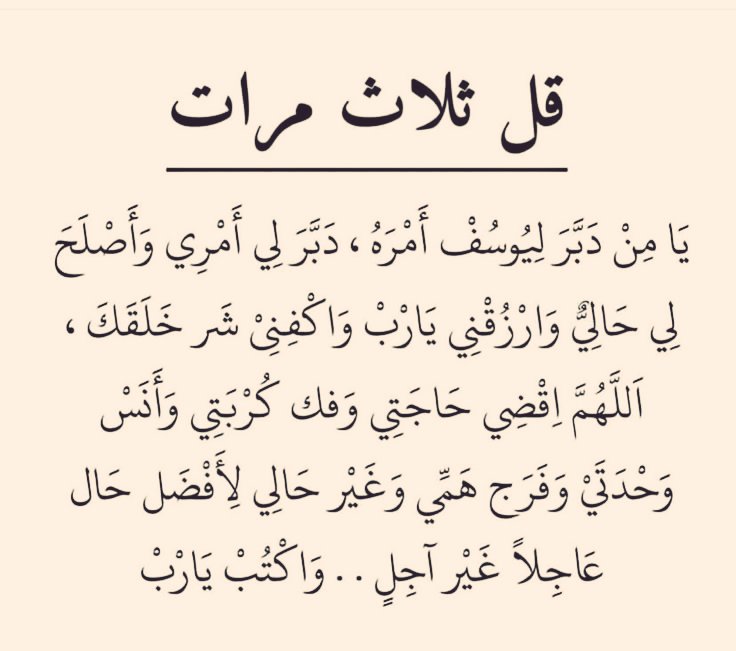 قل ثلاث مرات
يَا مِنْ دَبَّرَ لِيُوسُفْ أَمْرَهُ ، دَبَّرَ لِي أَمْرِي وَأَصْلَحَ
لِي حَالِيٌّ وَارْزُقْنِي يَارْبْ وَاكْفِنِيْ شَر خَلَقَكَ ،
اَللَّهُمَّ اِقْضِي حَاجَتِي وَفك كُرْبَتِي وَأَنَسْ
وَحْدَتَيْ وَفَرَج هَمِّي وَغَيْر حَالِي لِأَفْضَل حَال
عَاجِلاً غَيْر آجِلٍ . . وَاكْتُبْ يَارْبْ